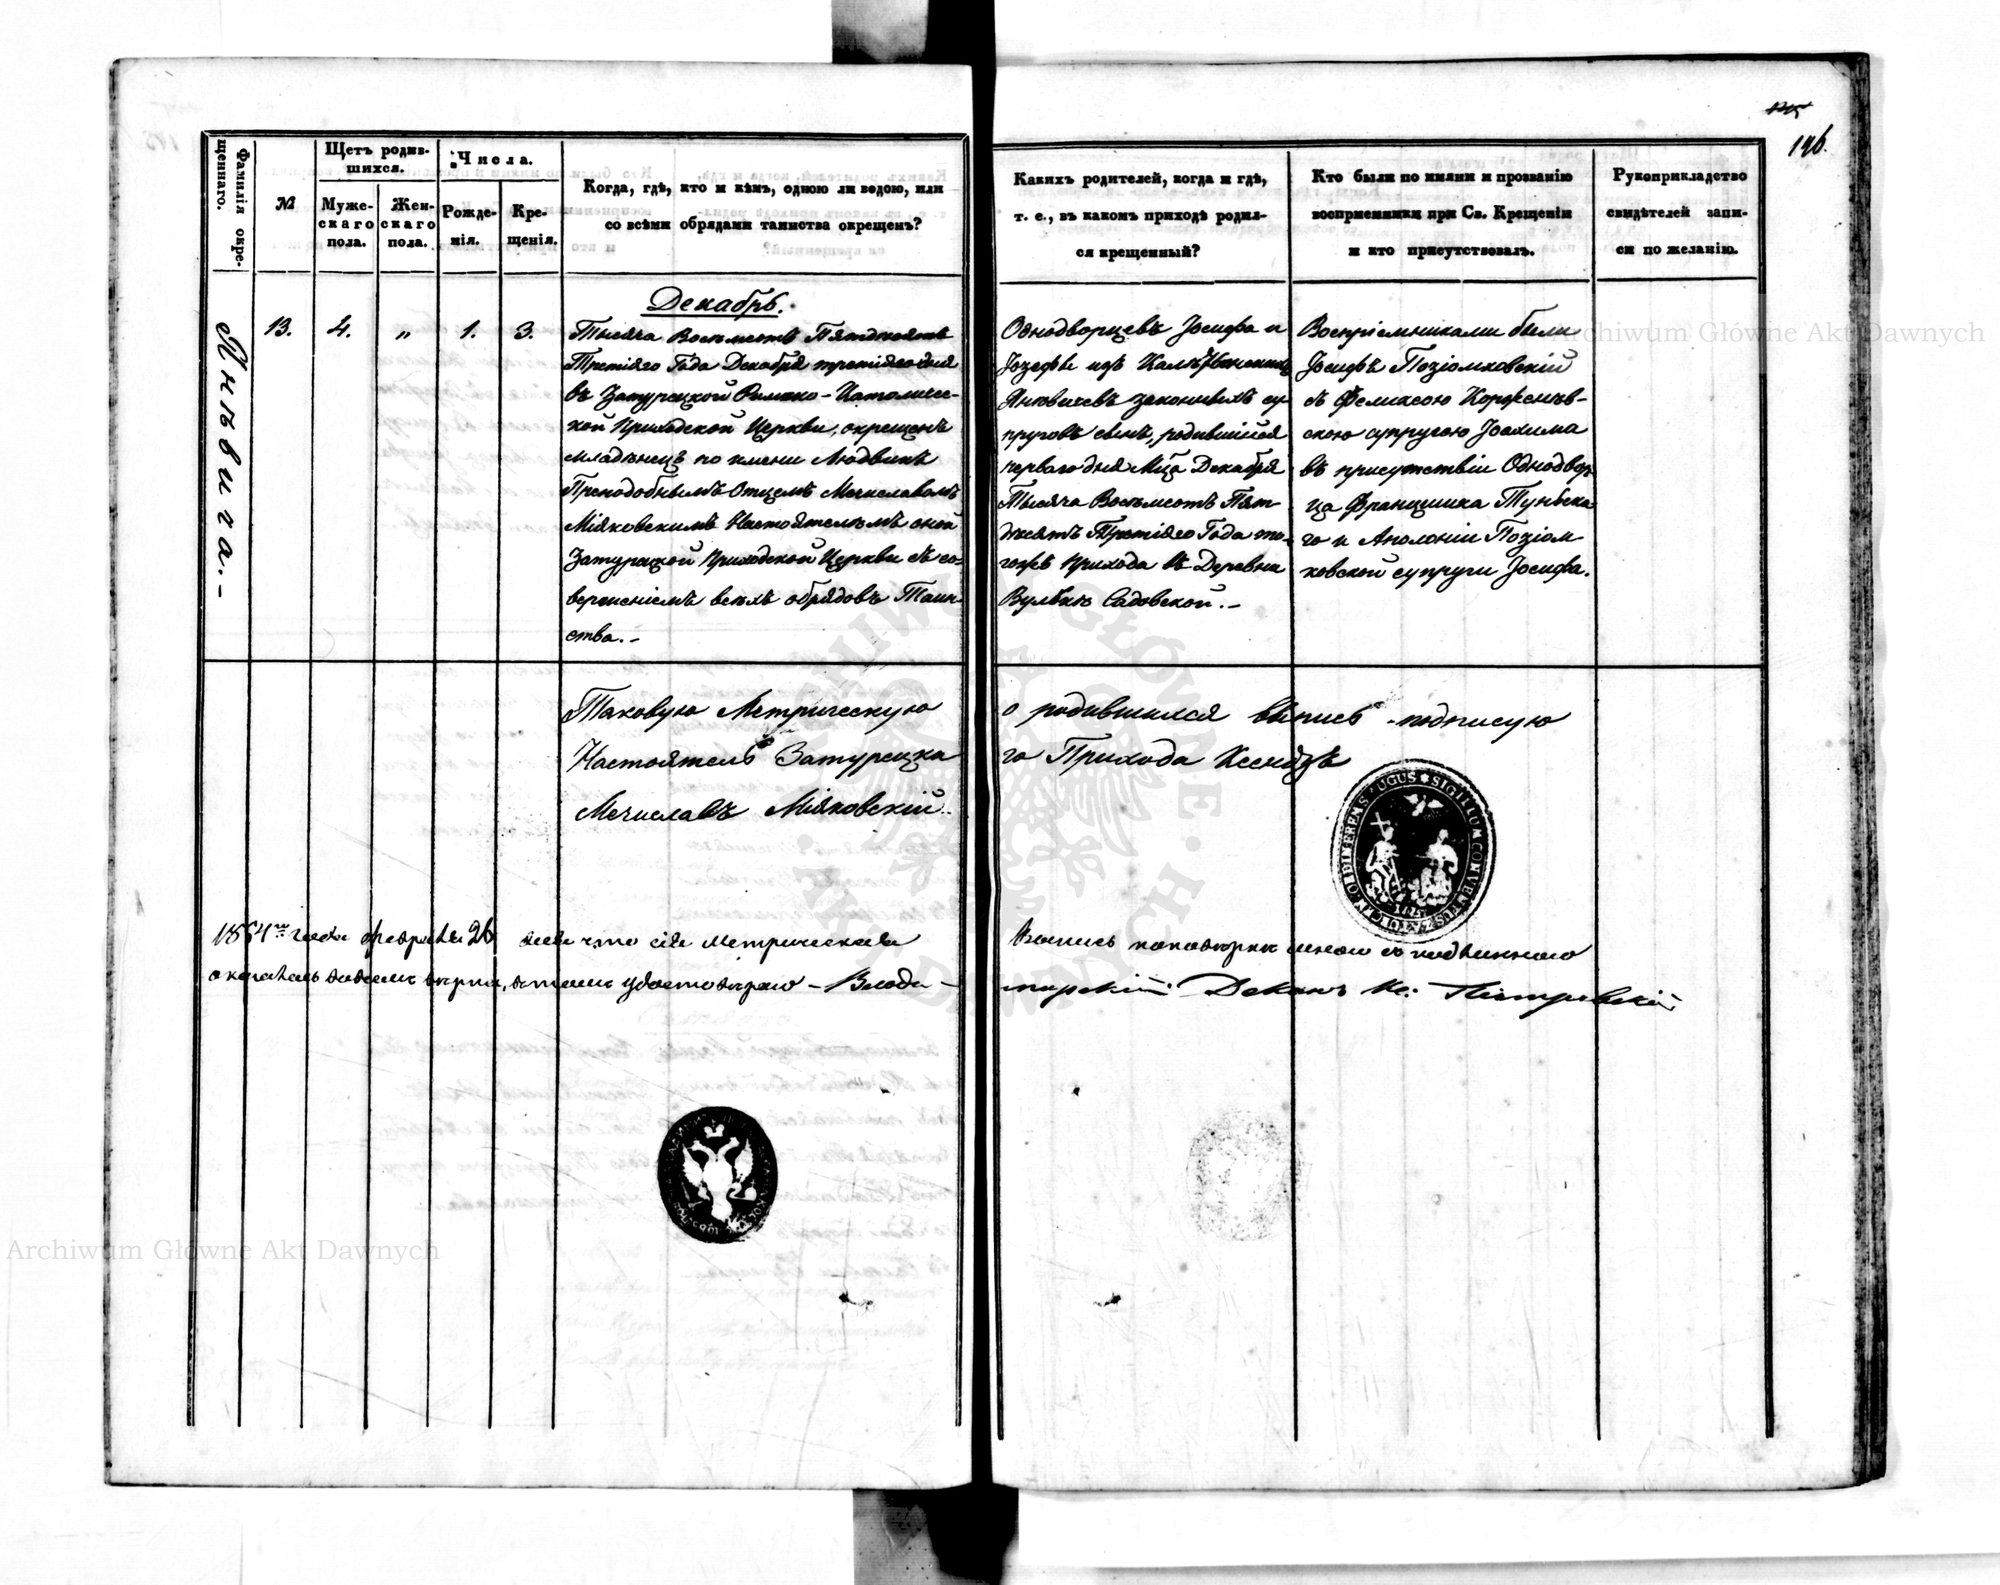 126.
Фамилія окре-
щеннаго.
№
Щетъ родив-
шихся.
Муже-
скаго
пола.
Жен-
скаго
пола.
Числа.
Рожде-
нія.
Кре-
щенія.
Когда, гдѣ, кто и кѣмъ, одною ли водою, или
со всѣми обрядами таинства окрещенъ?
Какихъ родителей, когда и гдѣ,
т. е., въ какомъ приходѣ родил-
ся крещенный?
Кто были по имяни и прозванію
воспріемники при Св. Крещеніи
и кто присутствовалъ.
Рукоприкладство
свидѣтелей запи-
си по желанію.
13.
4.
„
1.
3.
Декабрь.
Тысяча Восемьсотъ Пятдесятъ
Третіяго Года Декабря третіяго дня
въ Затурецкой Римско-Католичес-
кой Приходской Церкви, окрещенъ
младѣнецъ по имени Людвикъ
Преподобнымъ Отцемъ Мечиславомъ
Міяковскимъ Настоятелемъ оной
Затурецкой Приходской Церкви съ со-
вершеніемъ всѣхъ обрядовъ Таин-
ства.-
Однодворцевъ Іосифа и
Іозефы изъ
законныхъ су-
пруговъ сынъ, родившійся
перваго дня Мца Декабря
Тысяча Восемьсотъ Пят
десятъ Третіяго Года то-
гожъ Прихода въ Деревни
Вулькѣ Садовской.-
Воспріемниками были
Іосифъ Позіомковскій
съ Феликсою
скою супругою Іоахима
въ присутствіи Однодвор
ца Францишка
го и Аполоніи Позіом
ковской супруги Іосифа.
Таковую Метрическую
о родившимся выпись подписую
Настоятель Затурецка
го Прихода Ксендзъ
Мечиславъ Міяковскій.
SIGILLUM CONVENTUS
1854 года февраля 26 дня что сія метрическая
выпись мною съ подлиннаго
вѣрна, въ томъ удостовѣряю - Влоди-
мирскій Деканъ К:
Archiwum Główne Akt Dawnych
Archiwum Główne Akt Dawnych
ARCHIWUM GŁÓWNE AKT DAWNYCH